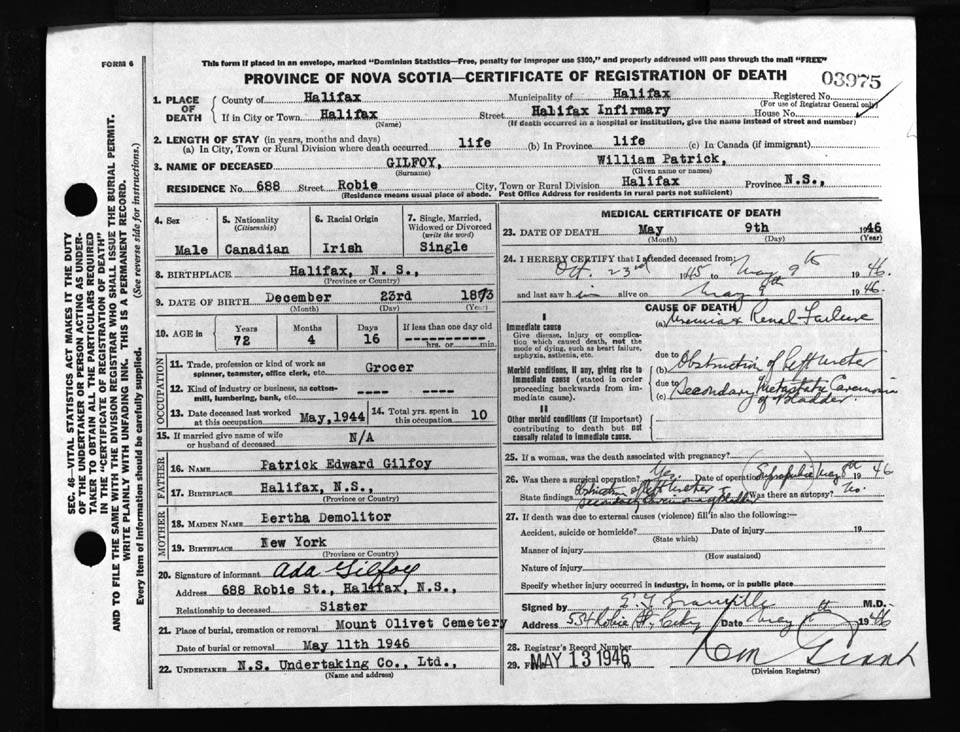 FORM 6
This form if placed in an envelope, marked "Dominion Statistics—Free, penalty for improper use $300," and properly addressed will pass through the mail "FREE"
PROVINCE OF NOVA SCOTIA—CERTIFICATE OF REGISTRATION OF DEATH 03975
1. PLACE OF DEATH County of Halifax Municipality of Halifax Registered No.
(For use of Registrar General only)
If in City or Town Halifax Street Halifax Infirmary House No.
(Name) (If death occurred in a hospital or institution, give the name instead of street and number)
2. LENGTH OF STAY (in years, months and days)
(a) In City, Town or Rural Division where death occurred life (b) In Province life (c) In Canada (if immigrant)
3. NAME OF DECEASED GILFOY, William Patrick,
(Surname) (Given name or names)
RESIDENCE No. 688 Street Robie City, Town or Rural Division Halifax Province N.S.,
(Residence means usual place of abode. Post Office Address for residents in rural parts not sufficient)
4. Sex 5. Nationality (Citizenship) 6. Racial Origin 7. Single, Married, Widowed or Divorced (write the word)
Male Canadian Irish Single
8. BIRTHPLACE Halifax, N. S.,
(Province or Country)
9. DATE OF BIRTH December 23rd 1873
(Month) (Day) (Year)
10. AGE IN Years Months Days If less than one day old
72 4 16 hrs. or min.
OCCUPATION
11. Trade, profession or kind of work as spinner, teamster, office clerk, etc. Grocer
12. Kind of industry or business, as cotton-mill, lumbering, bank, etc.
13. Date deceased last worked at this occupation May, 1944 14. Total yrs. spent in this occupation 10
15. If married give name of wife or husband of deceased N/A
FATHER
16. NAME Patrick Edward Gilfoy
17. BIRTHPLACE Halifax, N.S.,
MOTHER
18. MAIDEN NAME Bertha Demolitor
19. BIRTHPLACE New York
(Province or Country)
20. Signature of informant Ada Gilfoy
Address 688 Robie St., Halifax, N.S.,
Relationship to deceased Sister
21. Place of burial, cremation or removal Mount Olivet Cemetery
Date of burial or removal May 11th 1946
22. UNDERTAKER N.S. Undertaking Co., Ltd.,
(Name and address)
MEDICAL CERTIFICATE OF DEATH
23. DATE OF DEATH May 9th 1946
(Month) (Day) (Year)
24. I HEREBY CERTIFY that I attended deceased from:
Oct. 23rd 1945 to May 9th 1946.
and last saw him alive on May 9th 1946.
CAUSE OF DEATH
I
Immediate cause
Give disease, injury or complication which caused death, not the mode of dying, such as heart failure, asphyxia, asthenia, etc.
(a) Uremia & Renal Failure
due to
(b) Obstruction of left ureter
Morbid conditions, if any, giving rise to immediate cause (stated in order proceeding backwards from immediate cause).
due to
(c) Secondary Metastatic Carcinoma of Bladder.
II
Other morbid conditions (if important) contributing to death but not causally related to immediate cause.
25. If a woman, was the death associated with pregnancy?
26. Was there a surgical operation? Yes Date of operation (Suprapubic) May 8th 46
State findings Obstruction of left ureter Secondary Carcinoma of bladder Was there an autopsy? No.
27. If death was due to external causes (violence) fill in also the following:—
Accident, suicide or homicide? Date of injury 19
(State which)
Manner of injury
(How sustained)
Nature of injury
Specify whether injury occurred in industry, in home, or in public place
Signed by M.D.
Address 534 Robie St., City Date May 1946
28. Registrar's Record Number
29. MAY 13 1946
(Division Registrar)
SEC. 46—VITAL STATISTICS ACT MAKES IT THE DUTY OF THE UNDERTAKER OR PERSON ACTING AS UNDERTAKER TO OBTAIN ALL THE PARTICULARS REQUIRED IN THE "CERTIFICATE OF REGISTRATION OF DEATH" AND TO FILE THE SAME WITH THE DIVISION REGISTRAR WHO SHALL ISSUE THE BURIAL PERMIT.
WRITE PLAINLY WITH UNFADING INK. THIS IS A PERMANENT RECORD.
Every item of information should be carefully supplied. (See reverse side for instructions.)